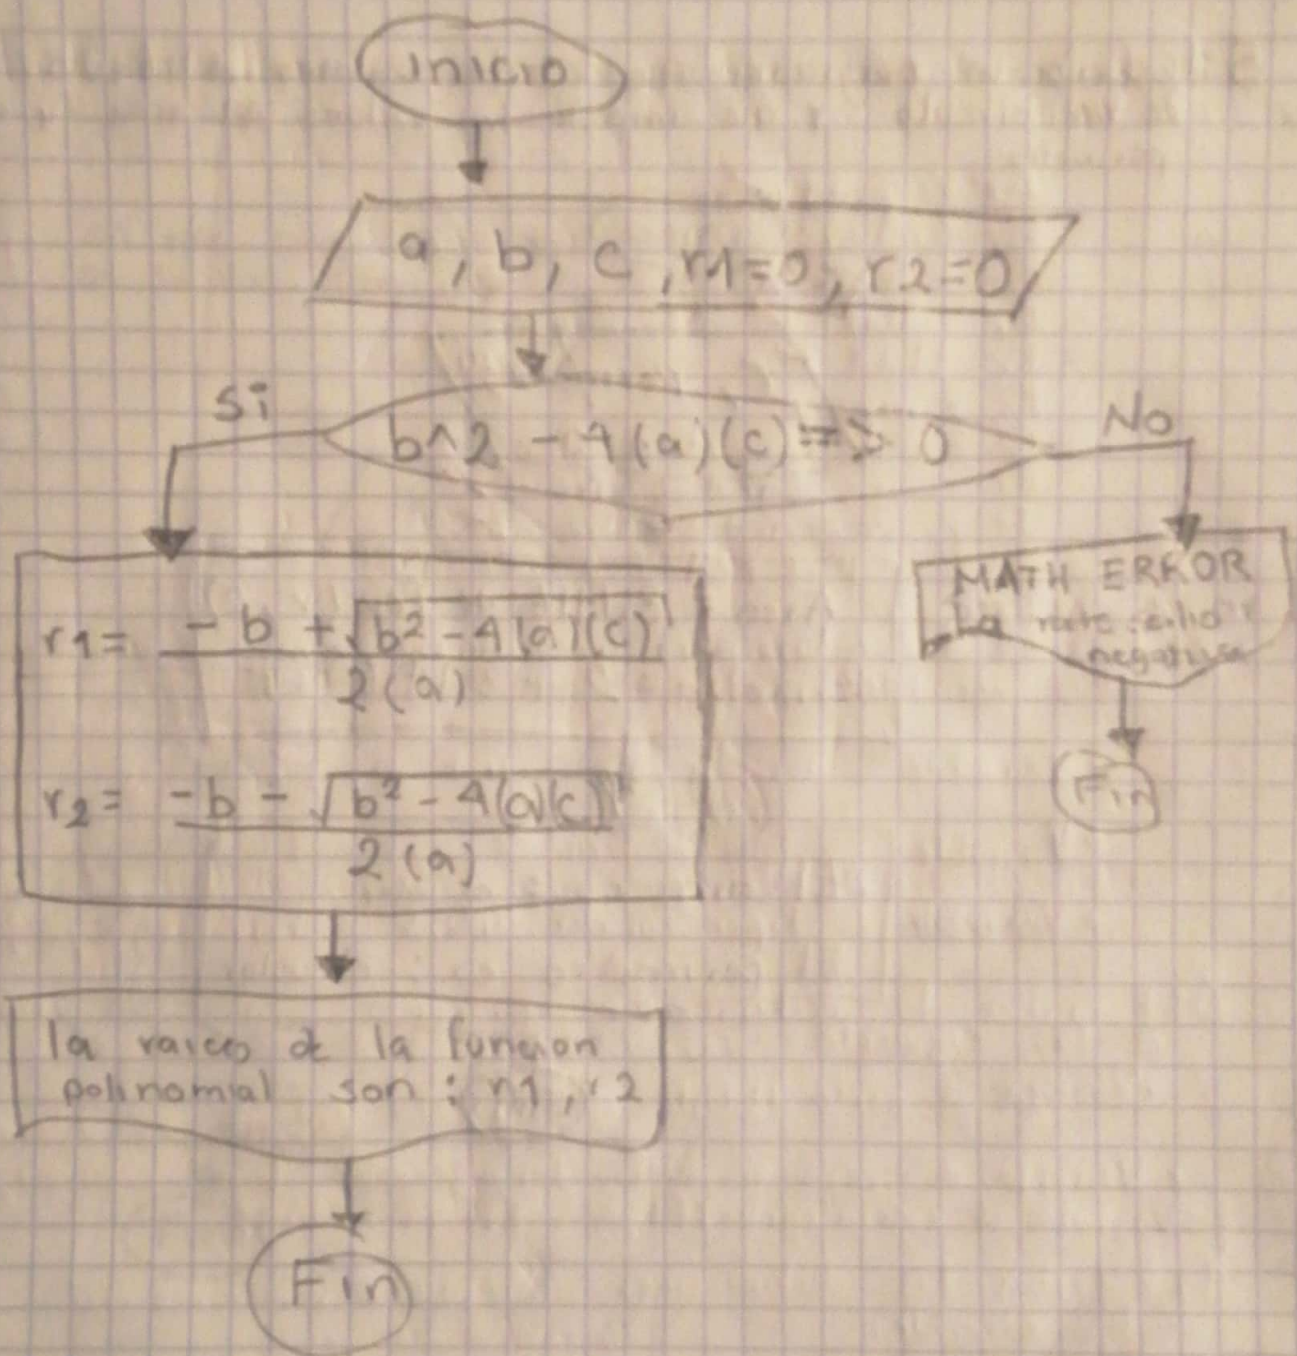 inicio
a, b, c, r1=0, r2=0
si
b^2 - 4(a)(c) => 0
No
r1= -b + √b² - 4(a)(c)
2(a)
r2= -b - √b² - 4(a)(c)
2(a)
MATH ERROR
La
negativa
Fin
la raices de la funcion
polinomial son : r1, r2
Fin